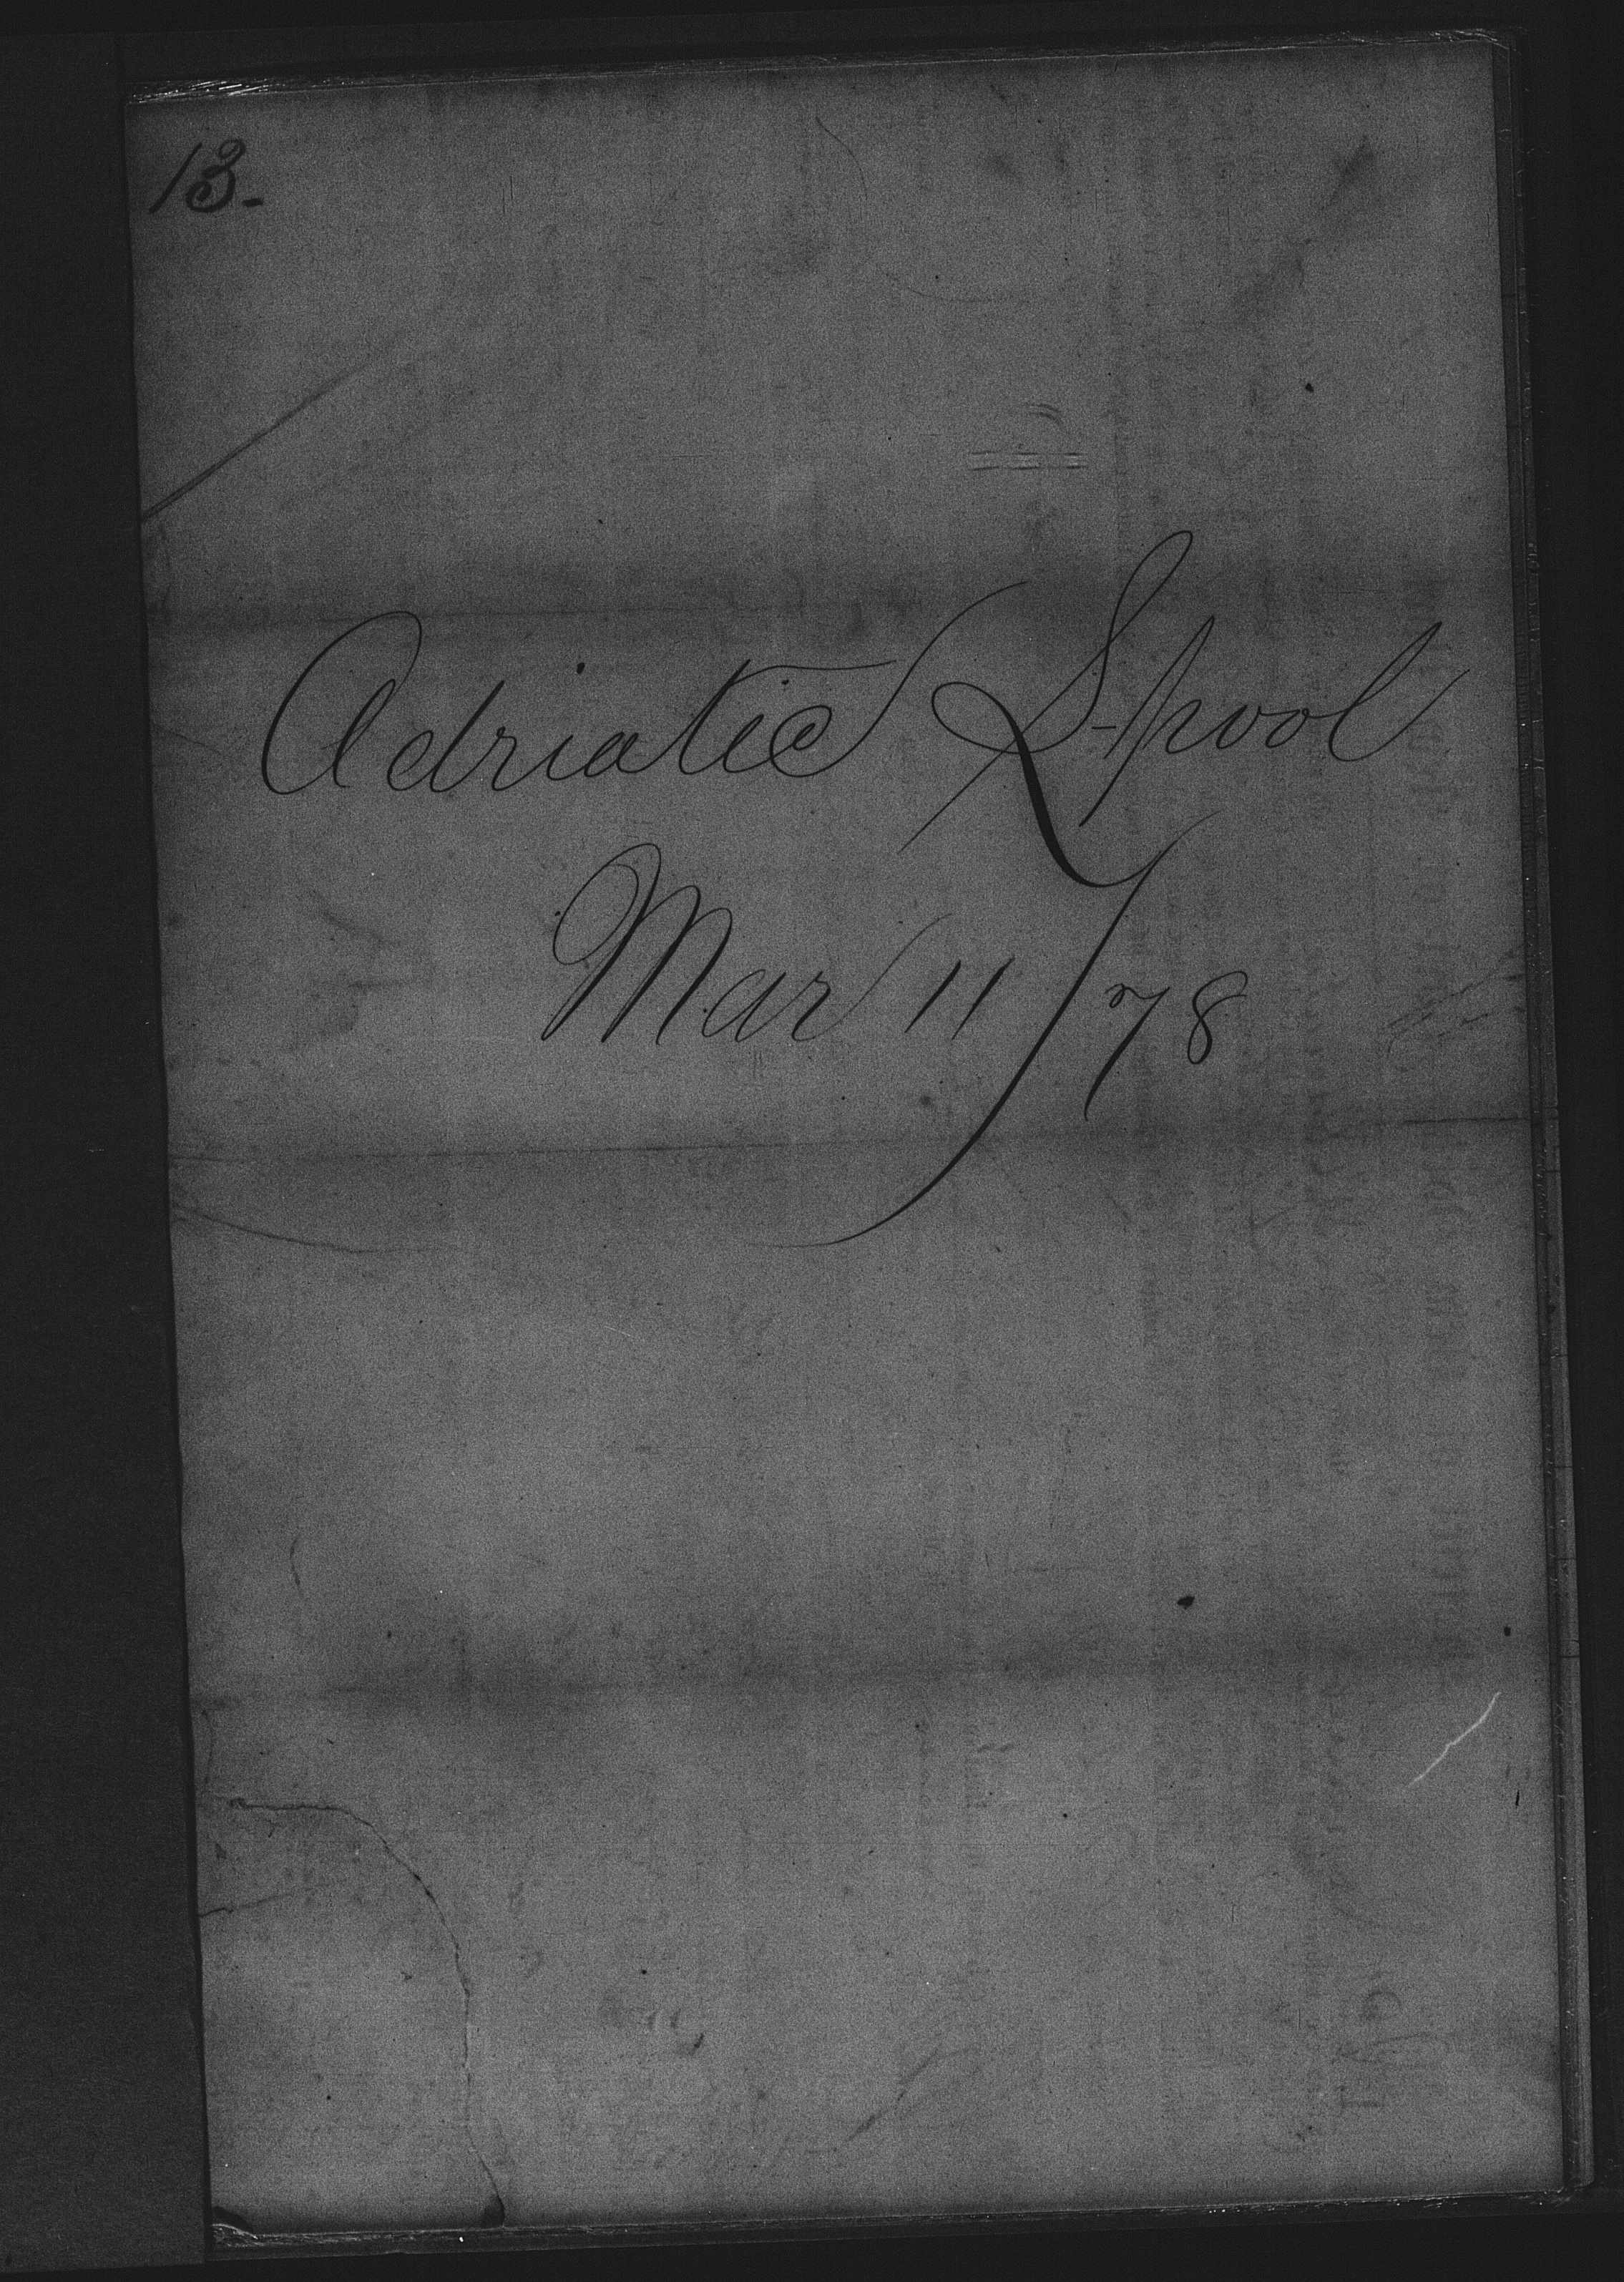 13.
Adriatic L-pool
Mar 11/78